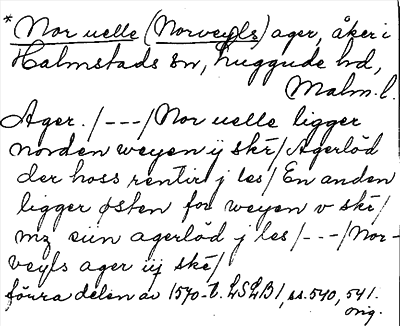 * Nor uelle (Norveyls) ager, åker i
Halmstads sn, Luggude hd,
Malm. l.
Ager. /---/ Nor uelle ligger
norden weyen ij skē / Agerlöd
der hoss rentir j les / En anden
ligger østen for weyen v skē /
mz siin agerlöd j les /---/ Nor-
veyls ager iij skē /
förra delen av 1570-t. LSLB 1, ss. 540, 541.
orig.